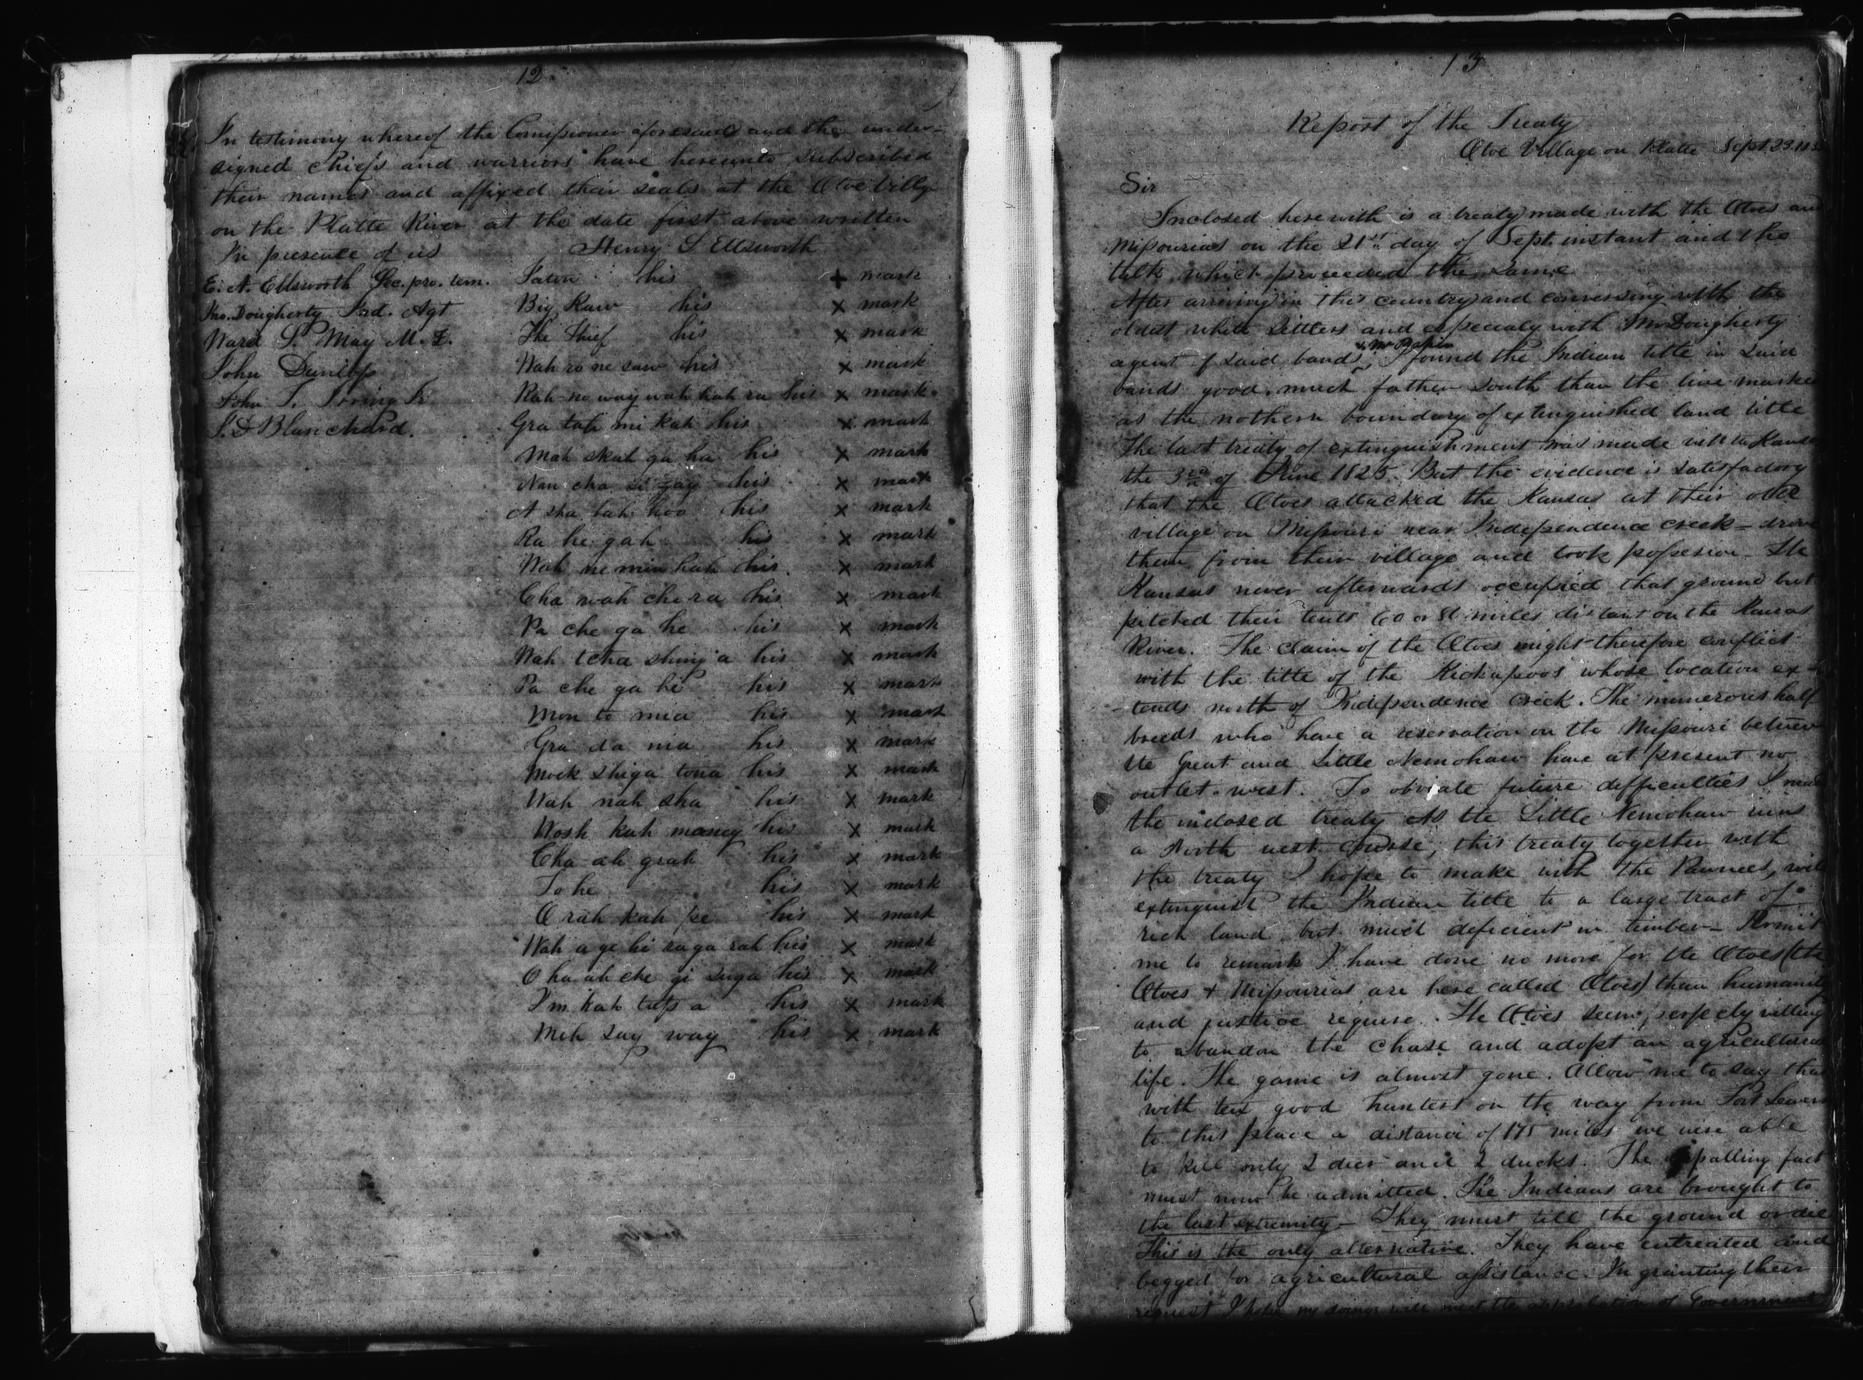 12
In testimony whereof the Comissioner aforesaid and the under-
signed Chiefs and warriors have hereunto subscribed
their names and affixed their seals at the Otoe Villg
on the Platte River at the date first above written
In presence of us Henry L Ellsworth
E. A. Ellsworth Sec. pro. tem. Jaton his + mark
Jno. Dougherty Ind. Agt Big Kaw his x mark
Ward S. May M. D. The Thief his x mark
John Dunlop Wah ro ne saw his x mark
John T. Irving Jr. Rah no way wah hah ra his x mark.
I. D Blanchard. Gra tah ni kah his x mark
Mah skah ga ha his x mark
Nan cha si zay his x mark
A sha bah hoo his x mark
Ra he gah his x mark
Nah ne min hah his. x mark
Cha wah che ra his x mark
Pa che ga he his x mark
Wah tcha shing a his x mark
Pa che ga he his x mark
Mon to nia his x mark
Gra da nia his x mark
Mock shiga tona his x mark
Wah nah sha his x mark
Wosh kah maney his x mark
Cha ah grah his x mark
To he his x mark
O rah kah pe his x mark
Wah a ge hi ruga rah his x mark
O ha ah che gi suga his x mark
I'm kah taps a his x mark
Meh say way his x mark
13
Report of the Treaty
Otoe Village on Platte Sept. 23. 18
Sir
Inclosed herewith is a treaty made with the Otoes and
Missourias on the 21st day of Sept. instant and the
talk which preceeded the same
After arriving in this country and conversing with the
oldest white settlers and especialy with Mr Dougherty
agent of said bands & Mr Papin I found the Indian title in said
bands good. much father south than the line marked
as the nothern boundary of extinguished land title
The last treaty of extinguishment was made with the Kansas
the 3rd of June 1825. But the evidence is satisfactory
that the Otoes attacked the Kansas at their old
village on Missouri near Independence creek – drove
them from their village and took possession. The
Kansas never afterwards occupied that ground but
pitched their tents 60 or 80 miles distant on the Kansas
River. The claim of the Otoes might therefore conflict
with the title of the Kickapoos whose location ex-
-tends north of Independence Creek. The numerous half
breeds who have a reservation on the Missouri between
the Great and Little Nemohaw have at present no
outlet west. To obviate future difficulties I made
the inclosed treaty As the Little Nemohaw runs
a North west course, this treaty together with
the treaty I hope to make with the Pawnees, will
extinguish the Indian title to a large tract of
rich land but much deficient in timber – Permit
me to remark I have done no more for the Otoes (the
Otoes & Missourias are here called Otoes) than humanity
and justice require. The Otoes seem perfectly willing
to abandon the chase and adopt an agricultural
life. The game is almost gone. Allow me to say that
with ten good hunters on the way from Fort Leaven
to this place a distance of 175 miles we were able
to kill only 2 deer and 2 ducks. The appalling fact
must now be admitted. The Indians are brought to
the last extremity – They must till the ground or die
This is the only alternative. They have entreated and
begged for agricultural assistance. In granting their
request I hope my doings will meet the approbation of Government